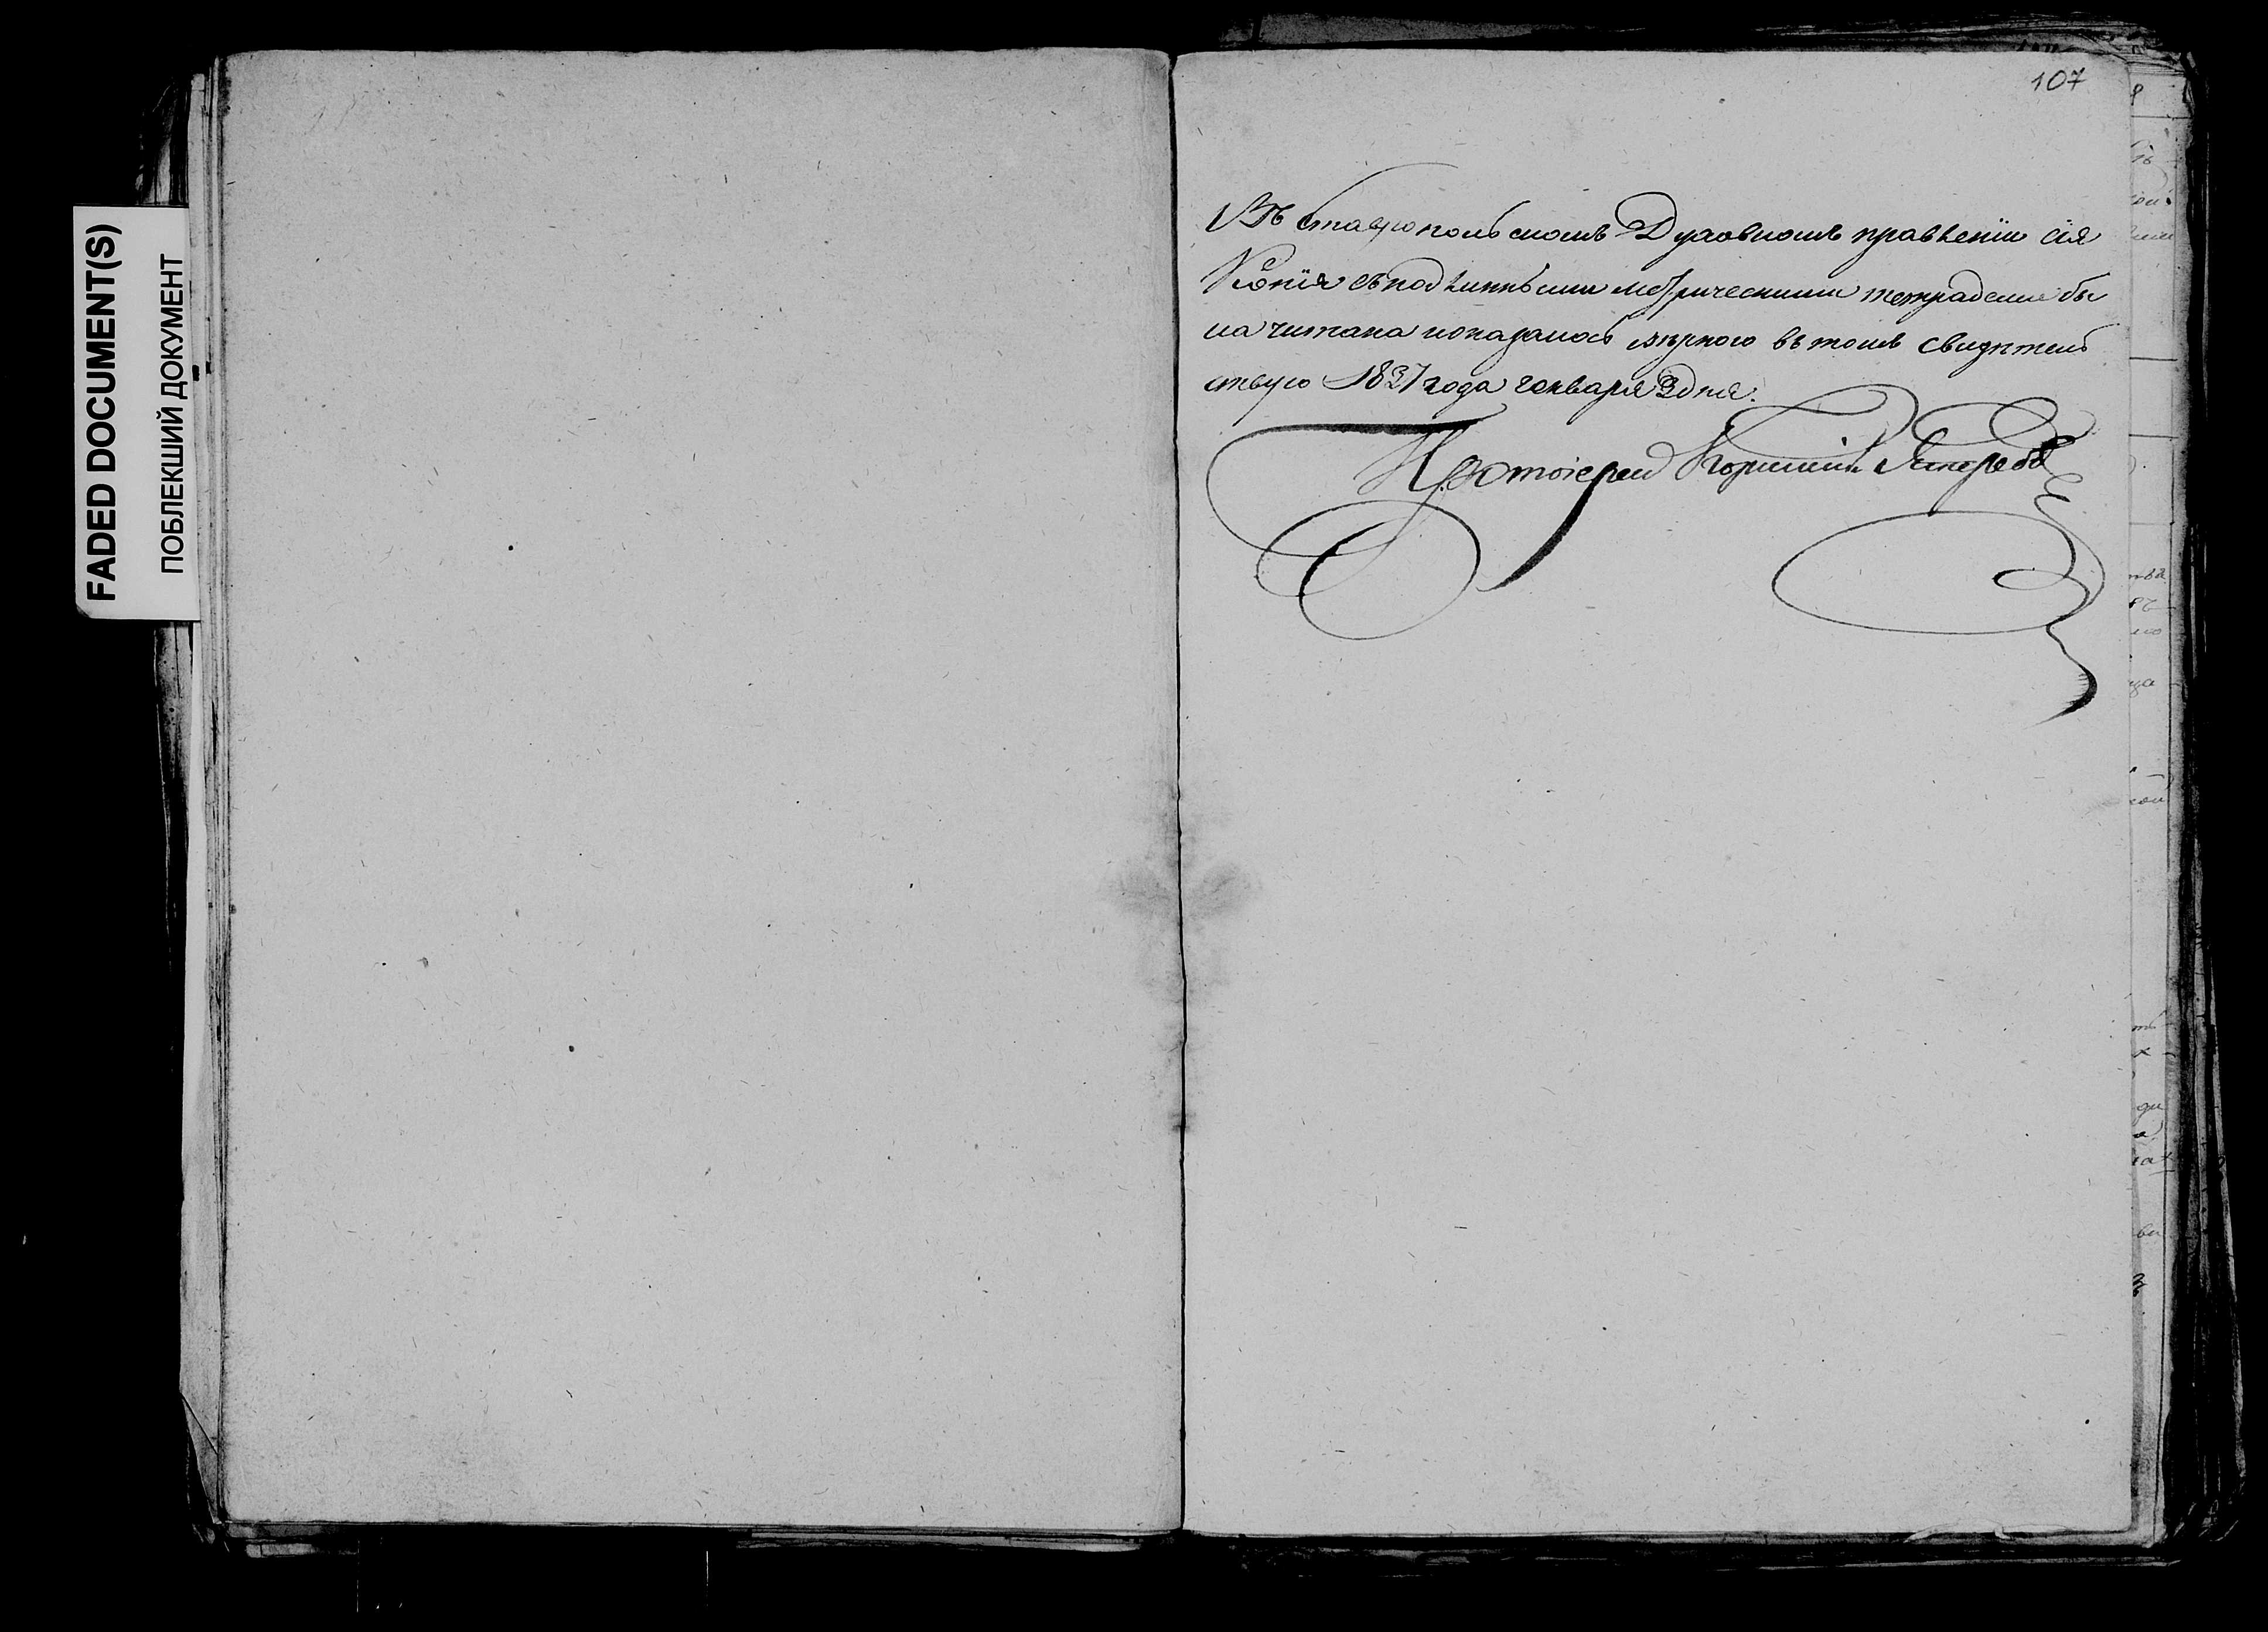 FADED DOCUMENT(S)
ПОБЛЕКШИЙ ДОКУМЕНТ
107
Въ Ставропольскомъ Духовномъ правленіи сія
Копія съ подлинными метрическими тетрадеми бы
ла читана и оказалась вѣрною въ томъ свидѣтель
ствую 1837 года генваря 3 дня.
Протоіерей